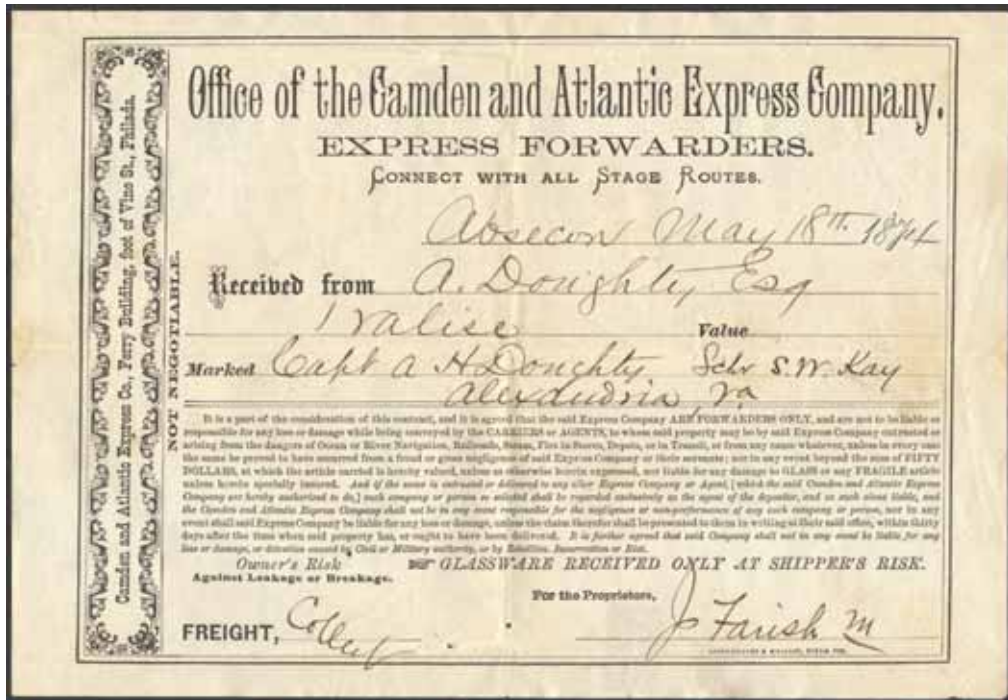 Office of the Camden and Atlantic Express Company.
EXPRESS FORWARDERS.
CONNECT WITH ALL STAGE ROUTES.
Absecon May 18th 1874
Received from A. Doughty, Esq
1 valise Value
Marked Capt A H Doughty Schr S. W. Kay
Alexandria, Va
It is a part of the consideration of this contract, and it is agreed that the said Express Company ARE FORWARDERS ONLY, and are not to be liable or
responsible for any loss or damage while being conveyed by the CARRIERS or AGENTS, to whom said property may be by said Express Company entrusted or
arising from the dangers of Ocean or River Navigation, Railroads, Steam, Fire in Stores, Depots, or in Transit, or from any cause whatever, unless in every case
the same be proved to have occurred from a fraud or gross negligence of said Express Company or their servants; nor in any event beyond the sum of FIFTY
DOLLARS, at which the article carried is hereby valued, unless so otherwise herein expressed, nor liable for any damage to GLASS or any FRAGILE article
unless hereby specially insured. And if the same is entrusted or delivered to any other Express Company or Agent, [which the said Camden and Atlantic Express
Company are hereby authorized to do,] such company or person so selected shall be regarded exclusively as the agent of the depositor, and as such alone liable, and
the Camden and Atlantic Express Company shall not be in any event responsible for the negligence or non-performance of any such company or person, nor in any
event shall said Express Company be liable for any loss or damage, unless the claim therefor shall be presented to them in writing at their said office, within thirty
days after the time when said property has, or ought to have been delivered. It is further agreed that said Company shall not in any event be liable for any
loss or damage, or detention caused by Civil or Military authority, or by Rebellion, Insurrection or Riot.
Owner's Risk GLASSWARE RECEIVED ONLY AT SHIPPER'S RISK.
Against Leakage or Breakage.
For the Proprietors,
FREIGHT, Collect J. Farish
NOT NEGOTIABLE.
Camden and Atlantic Express Co., Ferry Building, foot of Vine St., Philada.